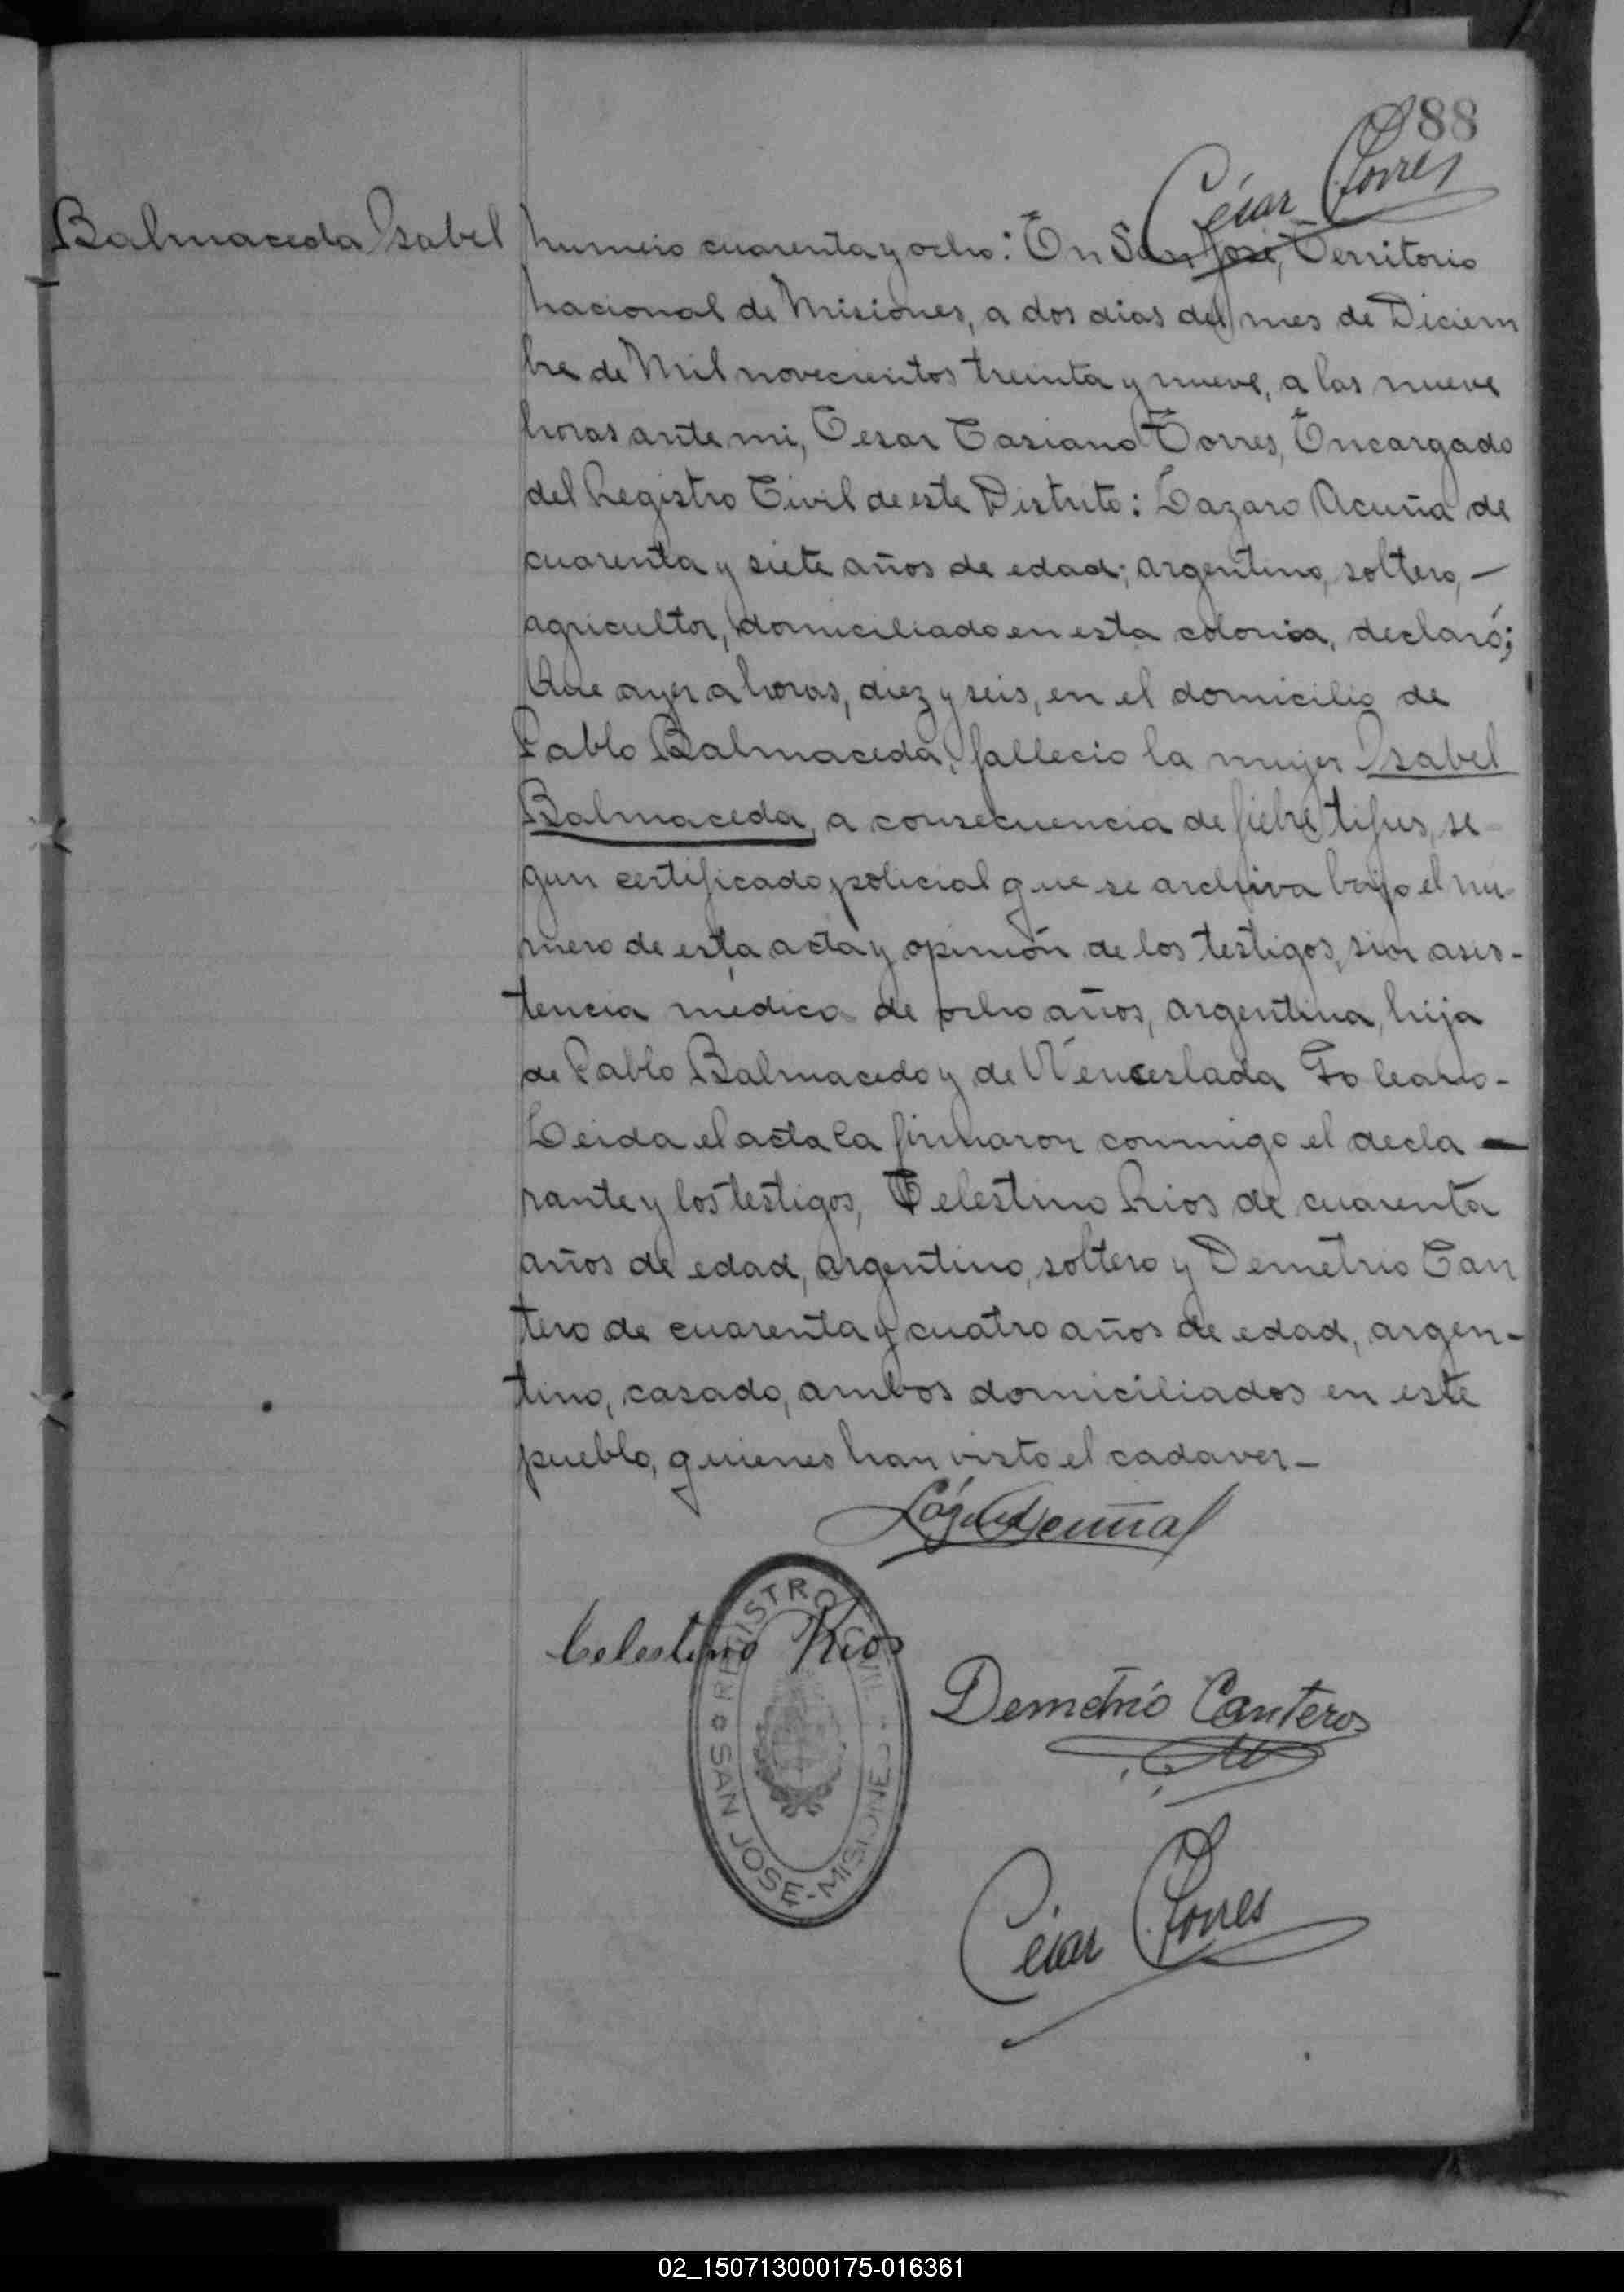 88
César Torres
Balmaceda Isabel
Numero cuarenta y ocho: En San José, Territorio
Nacional de Misiones, a dos dias del mes de Diciem
bre de Mil novecientos treinta y nueve, a las nueve
horas ante mi, Cesar Casiano Torres, Encargado
del Registro Civil de este Distrito: Lazaro Acuña de
cuarenta y siete años de edad; argentino, soltero, —
agricultor, domiciliado en esta colonia, declaró;
Que ayer a horas, diez y seis, en el domicilio de
Pablo Balmaceda, fallecio la mujer Isabel
Balmaceda, a consecuencia de fiebre tifus, se-
gun certificado policial que se archiva bajo el nu-
mero de esta acta y opinión de los testigos, sin asis-
tencia medica de ocho años, argentina, hija
de Pablo Balmacedo y de Wenceslada Toleano-
Leida el acta la firmaron conmigo el decla —
rante y los testigos, Celestino Rios de cuarenta
años de edad, argentino, soltero y Demetrio Can
tero de cuarenta y cuatro años de edad, argen-
tino, casado, ambos domiciliados en este
pueblo, quienes han visto el cadaver —
Acuña
Celestino Rios
REGISTRO CIVIL - SAN JOSE - MISIONES
Demetrio Canteros
César Torres
02_150713000175-016361